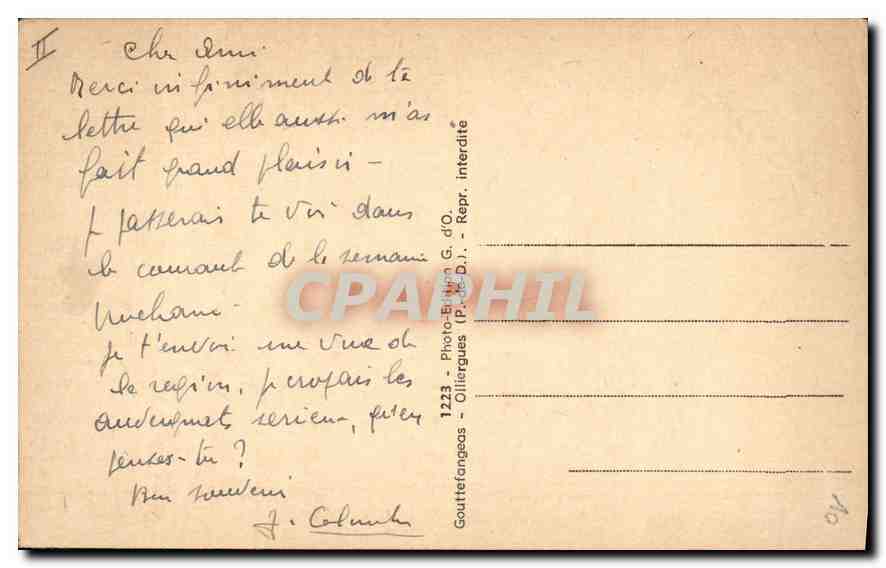 II
Cher Ami
Merci infiniment de ta
lettre qui elle aussi m'as
fait grand plaisir -
je passerais te voir dans
le courant de la semaine
prochaine.
je t'envoi une vue de
la region, je croyais les
auvergnats serieux, qu'en
penses-tu ?
Bon souvenir
J.
1223 - Photo-Edition G. d'O.
Gouttefangeas - Olliergues (P.-de-D.). - Repr. interdite
CPAPHIL
10